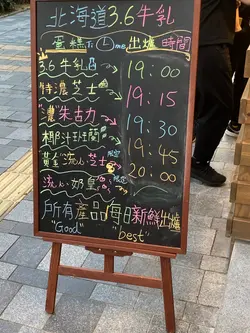 北海道3.6牛乳
蛋糕下Time出爐時間
3.6牛乳 19:00
特濃芝士 19:15
"濃"朱古力 19:30
椰汁班蘭 19:45
黃金流心芝士 20:00
流心奶皇
所有產品每日新鮮出爐
"Good" "best"